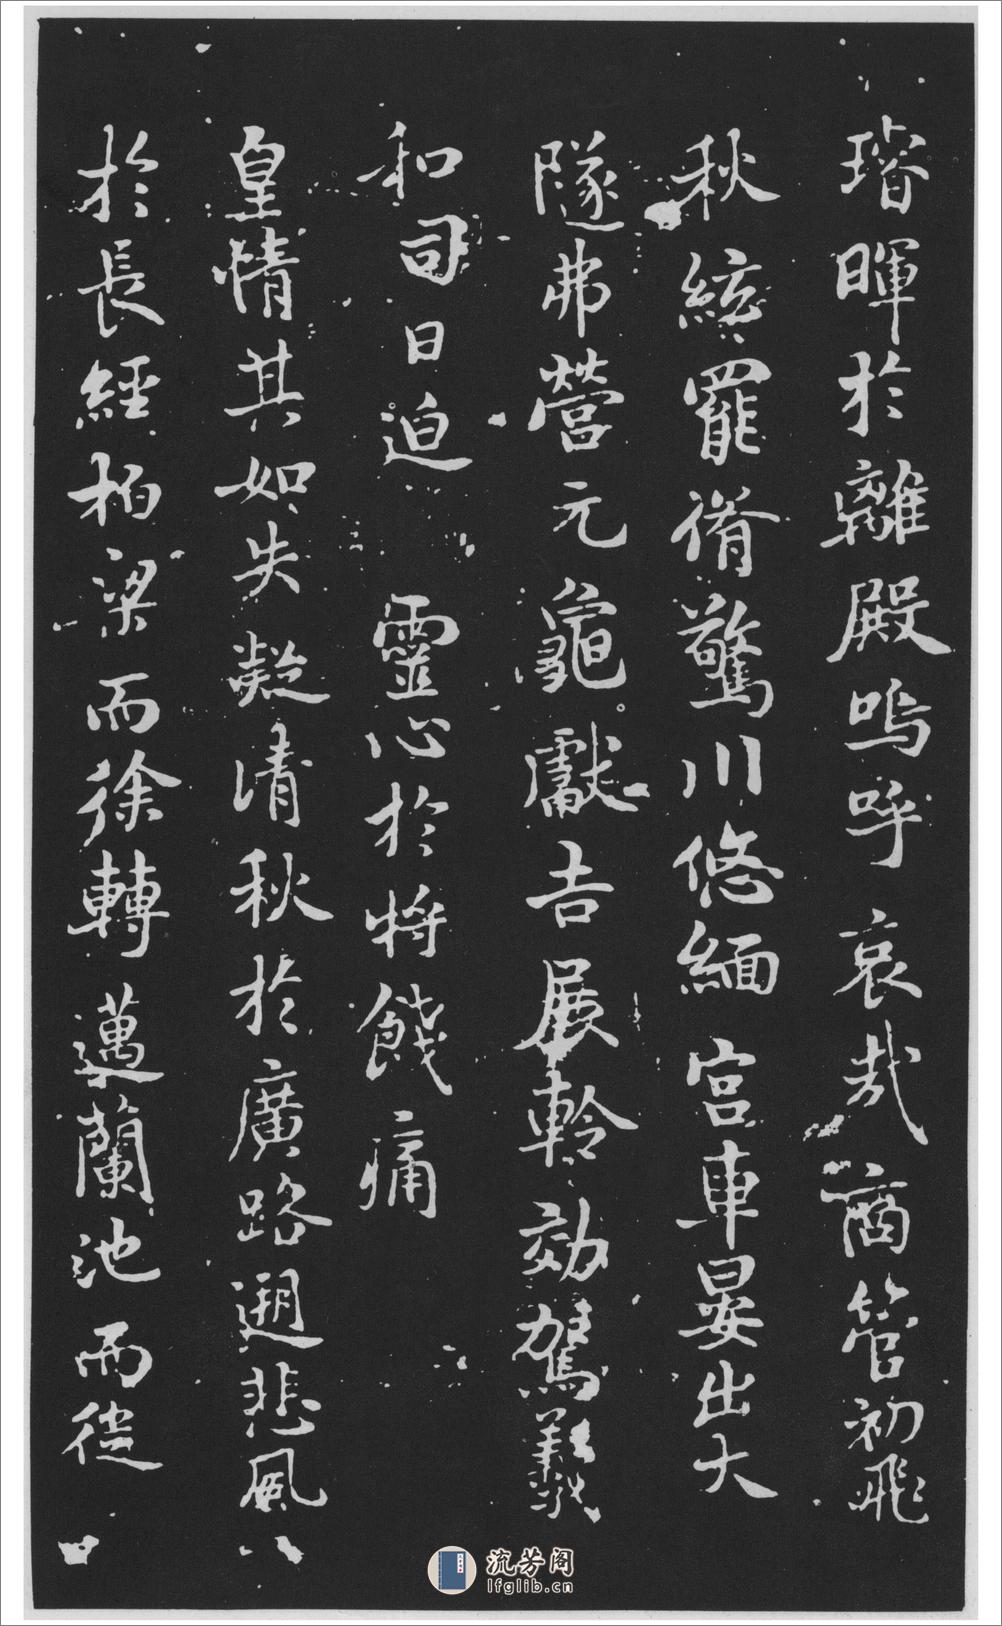 璿暉於離殿嗚呼哀哉商管初飛
秋絃罷脩驚川悠緬宮車晏出大
隧弗營元龜獻吉蜃軨効駕羲
和司日迫靈心於將餞痛
皇情其如失凝清秋於廣路遡悲風
於長經柏梁而徐轉邁蘭池而從
流芳阁
lfglib.cn